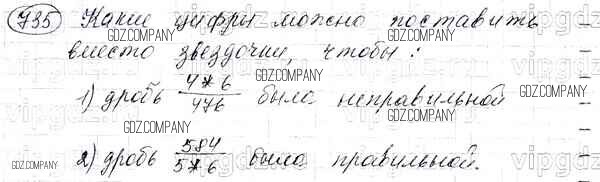 735 Какие цифры можно поставить
вместо звездочки, чтобы:
GDZ.COMPANY
GDZ.COMPANY
1) дробь 4*6/476 была неправильной
GDZ.COMPANY
GDZ.COMPANY
GDZ.COMPANY
2) дробь 584/5*6 была правильной.
GDZ.COMPANY
GDZ.COMPANY